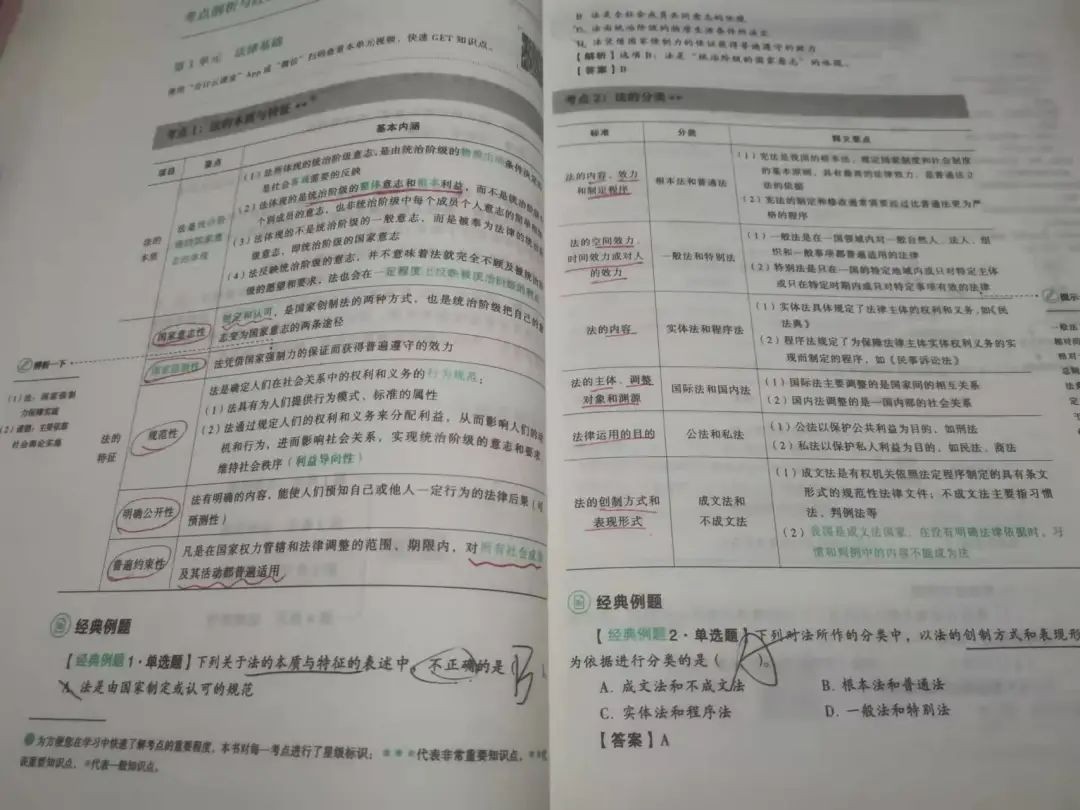 考点剖析与经
第1单元 法律基础
使用“会计云课堂”App或“微信”扫码查看本单元视频，快速GET知识点。
考点1：法的本质与特征
项目 要点 基本内涵
法的本质
法是统治阶级的国家意志的体现
（1）法所体现的统治阶级意志，是由统治阶级的物质生活条件决定的
是社会客观需要的反映
（2）法体现的是统治阶级的整体意志和根本利益，而不是统治阶级
个别成员的意志，也非统治阶级中每个成员个人意志的简单相加
（3）法体现的不是统治阶级的一般意志，而是被奉为法律的统治
级意志，即统治阶级的国家意志
（4）法反映统治阶级的意志，并不意味着法就完全不顾及被统治
级的愿望和要求，法也会在一定程度上反映被统治阶级的
法的特征
国家意志性
制定和认可，是国家创制法的两种方式，也是统治阶级把自己的意
志变为国家意志的两条途径
国家强制性
法凭借国家强制力的保证而获得普遍遵守的效力
规范性
法是确定人们在社会关系中的权利和义务的行为规范：
（1）法具有为人们提供行为模式、标准的属性
（2）法通过规定人们的权利和义务来分配利益，从而影响人们的动
机和行为，进而影响社会关系，实现统治阶级的意志和要求
维持社会秩序（利益导向性）
明确公开性
法有明确的内容，能使人们预知自己或他人一定行为的法律后果（可
预测性）
普遍约束性
凡是在国家权力管辖和法律调整的范围、期限内，对所有社会成
及其活动都普遍适用
辨析一下
（1）法：国家强制
力保障实施
（2）道德：主要依靠
社会舆论实施
经典例题
【经典例题1·单选题】下列关于法的本质与特征的表述中，不正确的是
B
A. 法是由国家制定或认可的规范
为方便您在学习中快速了解考点的重要程度，本书对每一考点进行了星级标识：***代表非常重要知识点，**代
表重要知识点，*代表一般知识点。
B. 法是全社会成员共同意志的体现
C. 法由统治阶级的物质生活条件所决定
D. 法凭借国家强制力的保证获得普遍遵守的效力
【解析】选项B：法是“统治阶级的国家意志”的体现。
【答案】B
考点2：法的分类
标准 分类 释义要点
法的内容、效力和制定程序
根本法和普通法
（1）宪法是我国的根本法，规定国家制度和社会制度
的基本原则，具有最高的法律效力，是普通法立
法的依据
（2）宪法的制定和修改通常需要经过比普通法更为严
格的程序
法的空间效力、时间效力或对人的效力
一般法和特别法
（1）一般法是在一国领域内对一般自然人、法人、组
织和一般事项都普遍适用的法律
（2）特别法是只在一国的特定地域内或只对特定主体
或只在特定时期内或只对特定事项有效的法律
法的内容
实体法和程序法
（1）实体法具体规定了法律主体的权利和义务，如《民
法典》
（2）程序法规定了为保障法律主体实体权利义务的实
现而制定的程序，如《民事诉讼法》
法的主体、调整对象和渊源
国际法和国内法
（1）国际法主要调整的是国家间的相互关系
（2）国内法调整的是一国内部的社会关系
法律运用的目的
公法和私法
（1）公法以保护公共利益为目的，如刑法
（2）私法以保护私人利益为目的，如民法、商法
法的创制方式和表现形式
成文法和不成文法
（1）成文法是有权机关依照法定程序制定的具有条文
形式的规范性法律文件；不成文法主要指习惯
法、判例法等
（2）我国是成文法国家，在没有明确法律依据时，习
惯和判例中的内容不能成为法
提示
一般法
经典例题
【经典例题2·单选题】下列对法所作的分类中，以法的创制方式和表现形
为依据进行分类的是（ ）。
A
A. 成文法和不成文法 B. 根本法和普通法
C. 实体法和程序法 D. 一般法和特别法
【答案】A